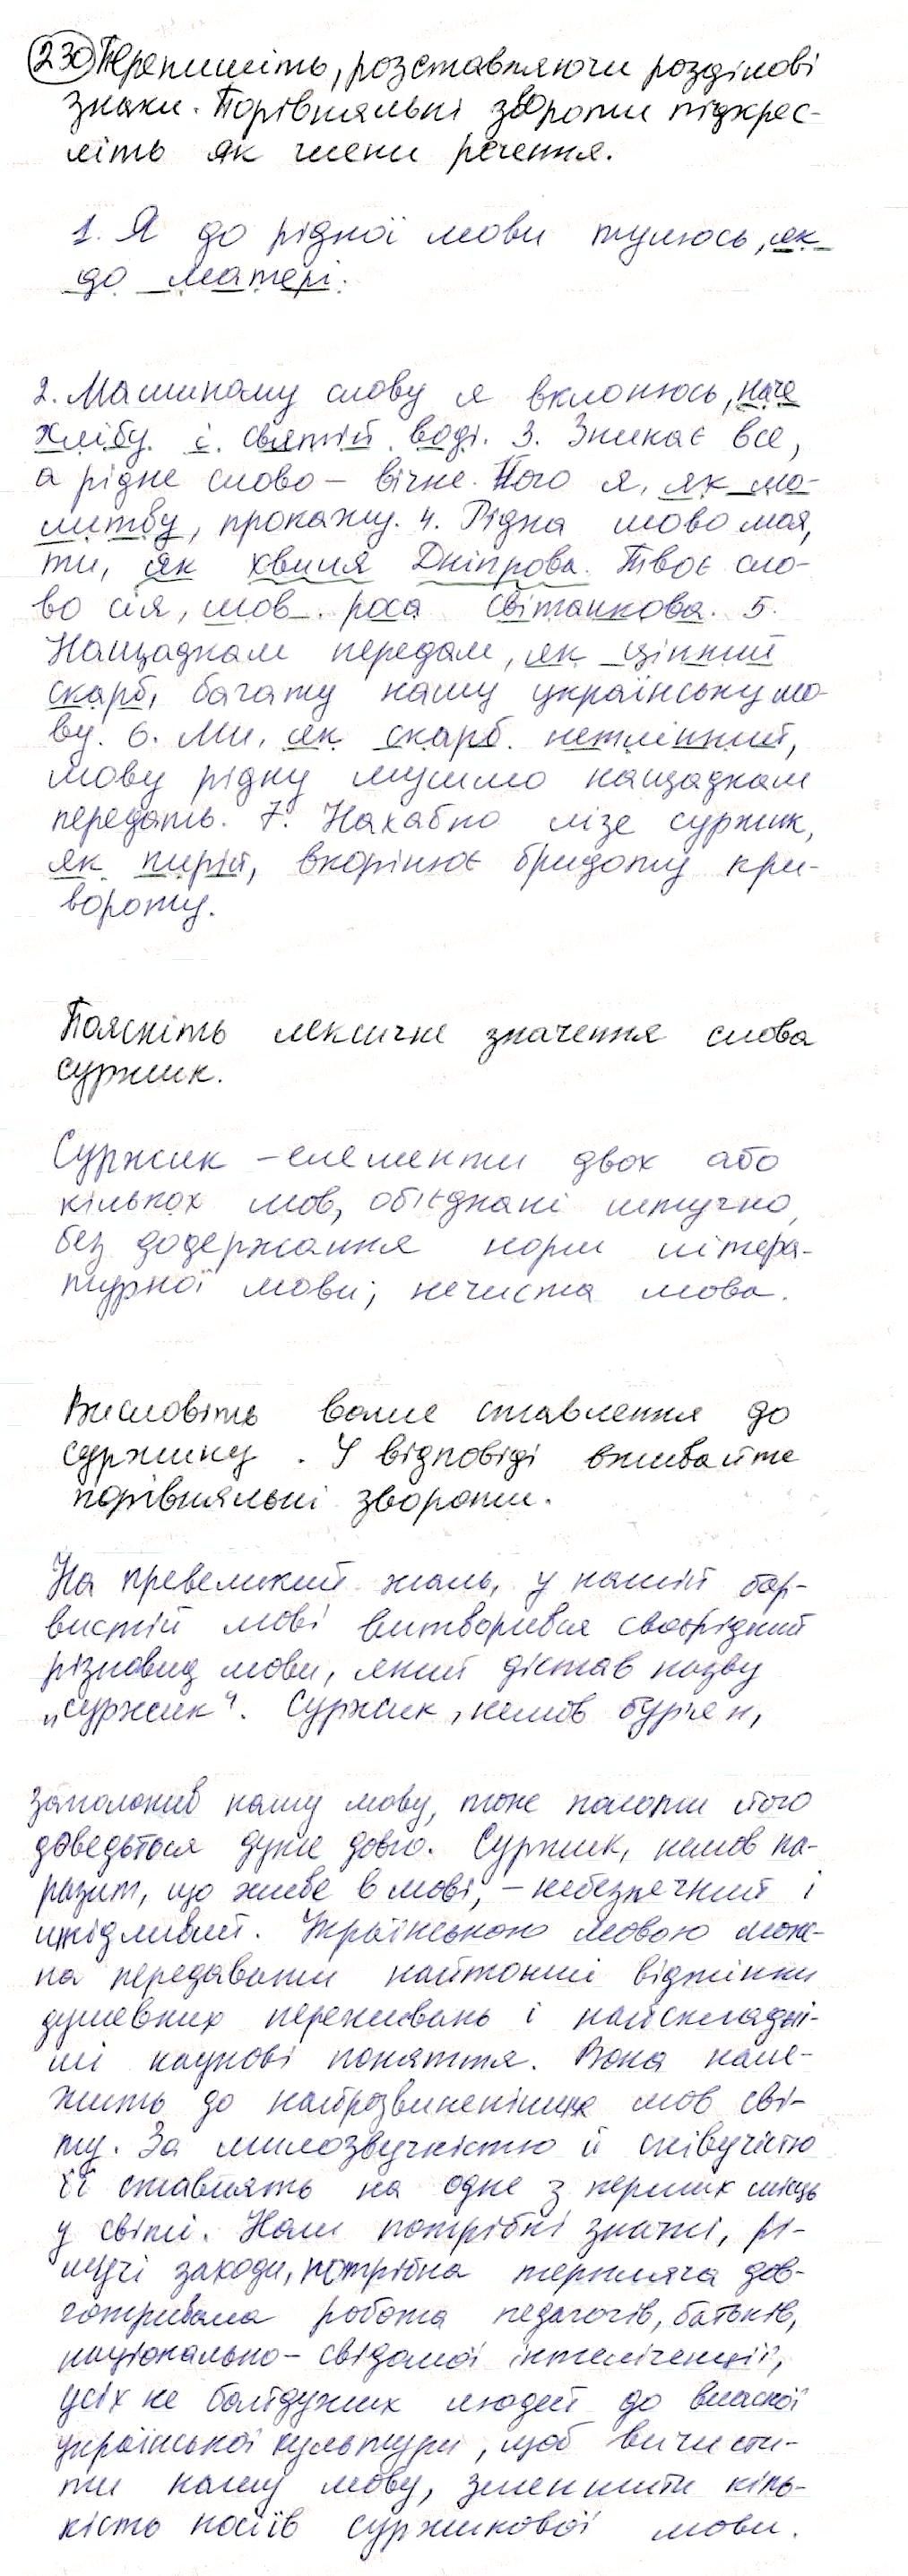 230 Перепишіть, розставляючи розділові
знаки. Порівняльні звороти підкрес-
літь як члени речення.
1. Я до рідної мови тулюсь, як
до матері.
2. Мамин​ому слову я вклонюсь, наче
хлібу і святій воді. 3. Зникає все,
а рідне слово – вічне. Його я, як мо-
литву, прокажу. 4. Рідна мово моя,
ти, як хвиля Дніпрова. Твоє сло-
во сія, мов роса світанкова. 5.
Нащадкам передам, як цінний
скарб, багату нашу українську мо-
ву. 6. Ми, як скарб нетлінний,
мову рідну мусимо нащадкам
передать. 7. Нахабно лізе суржик,
як пирій, вкорінює бридоту кри-
вороту.
Поясніть лексичне значення слова
суржик.
Суржик – елементи двох або
кількох мов, об'єднані штучно,
без додержання норм літера-
турної мови; нечиста мова.
Висловіть ваше ставлення до
суржику. У відповіді вживайте
порівняльні звороти.
На превеликий жаль, у нашій бар-
вистій мові витворився своєрідний
різновид мови, який дістав назву
„суржик“. Суржик, немов бур'ян,
заполонив нашу мову, тоже полоти його
доведеться дуже довго. Суржик, немов па-
разит, що живе в мові, – небезпечний і
шкідливий. Українською мовою мож-
на передавати найтонші відтінки
душевних переживань і найскладні-
ші наукові поняття. Вона нале-
жить до найрозвиненіших мов сві-
ту. За милозвучністю й співучістю
її ставлять на одне з перших місць
у світі. Нам потрібні значні, рі-
шучі заходи, потрібна терпляча дов-
готривала робота педагогів, батьків,
національно-свідомої інтелігенції,
усіх не байдужих людей до власної
української культури, щоб вичисти-
ти нашу мову, зменшити кіль-
кість носіїв суржикової мови.